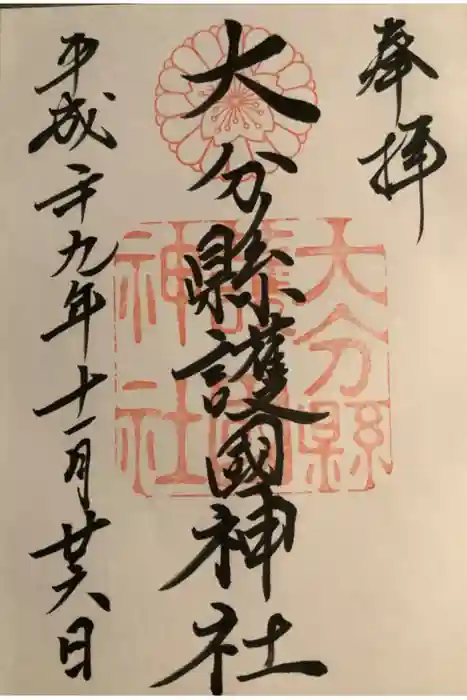 奉拝
大分縣護國神社
大分縣護國神社
平成二十九年十一月廿六日